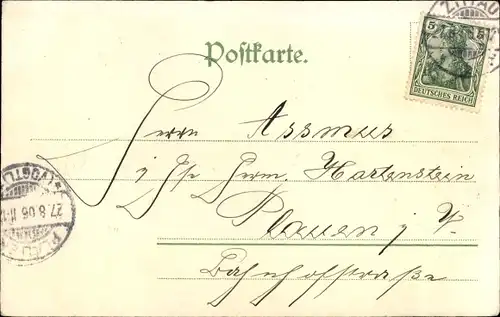 ZITTAU
5 5
DEUTSCHES REICH
Postkarte.
Herrn Assmus
i/Fa Herm. Hartenstein
Plauen i. V.
Bahnhofstraße
(VOGTL)
27.8.06